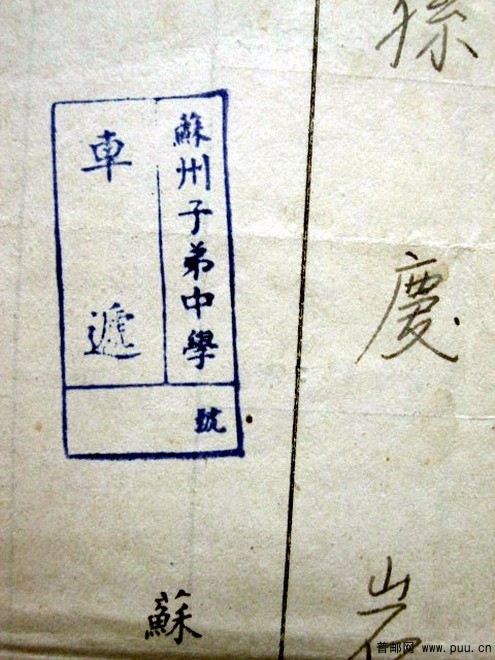 孫慶岩
蘇州子弟中學
車遞
號
蘇
普邮网 www.puu.cn